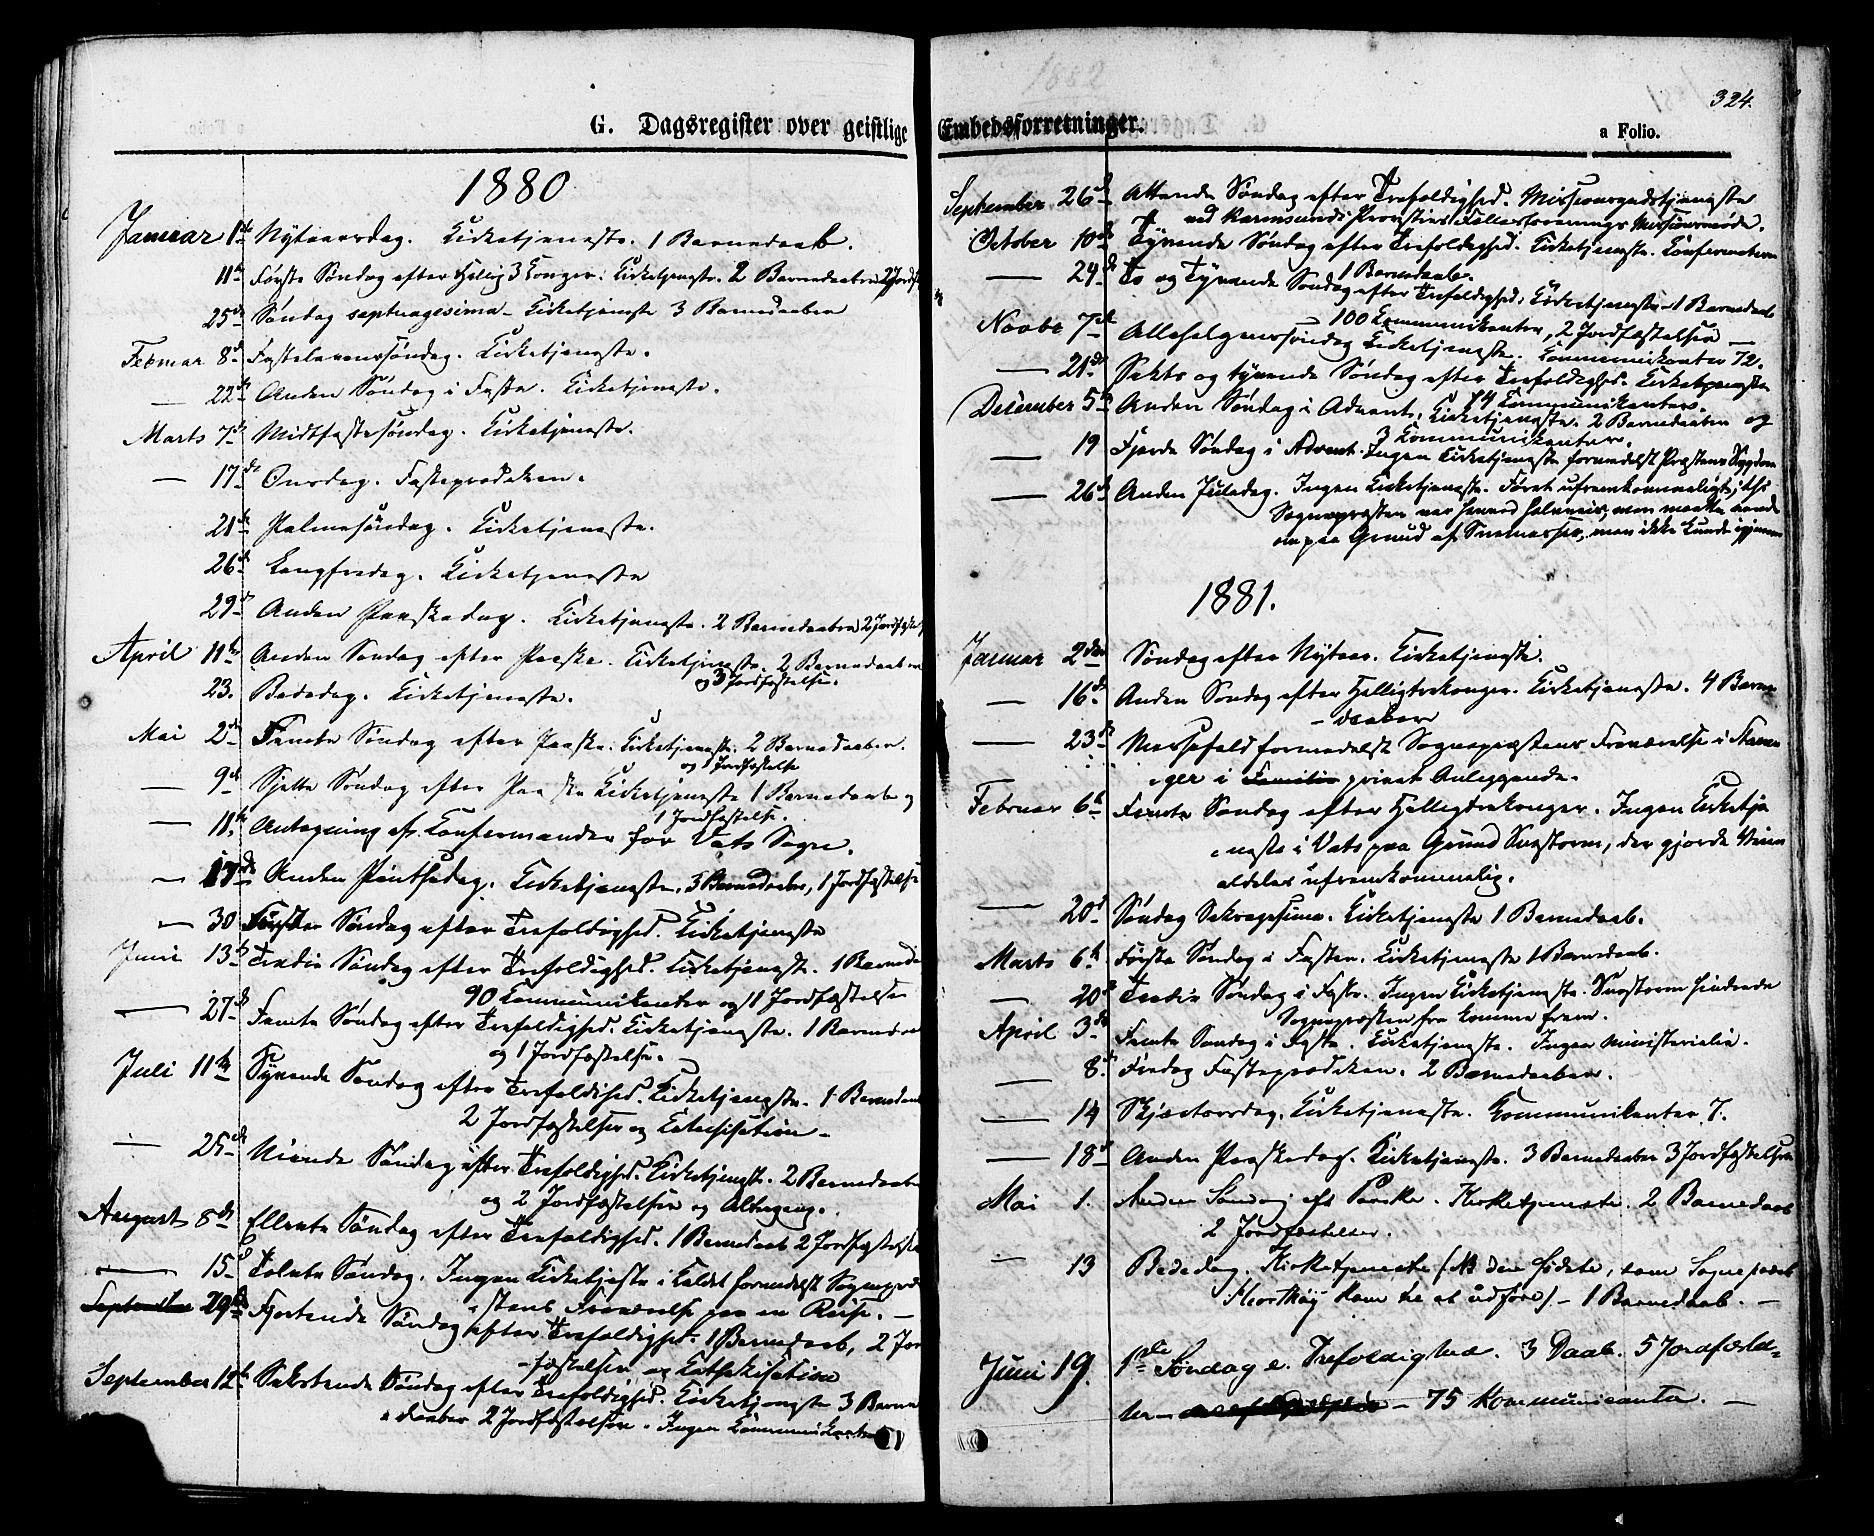 G. Dagsregister over geistlige
1880
Januar 1ste Nytaarsdag. Kirketjeneste. 1 Barnedaab.
11te Første Søndag efter Hellig 3 Konger. Kirketjeneste. 2 Barnedaaben 2 Jordf
25de Søndag septuagesima - Kirketjeneste 3 Barnedaaber
Februar 8de Fastelavenssøndag. Kirketjeneste.
— 22de Anden Søndag i Faste. Kirketjeneste.
Marts 7de Midtfastesøndag. Kirketjeneste.
— 17de Onsdag. Fasteprædiken.
21de Palmesøndag. Kirketjeneste.
26de Langfredag. Kirketjeneste
29de Anden Paaskedag. Kirketjeneste. 2 Barnedaaben 2 Jordfæste
April 11te Anden Søndag efter Paaske. Kirketjeneste. 2 Barnedaaben
og 3 Jordfæstelser.
23. Bededag. Kirketjeneste.
Mai 2den Femte Søndag efter Paaske. Kirketjeneste. 2 Barnedaaber.
og 1 Jordfæstelse
— 9de Sjette Søndag efter Paaske Kirketjeneste 1 Barnedaab og
1 Jordfæstelse.
— 11te Antagning af Konfirmander for Vats Sogn.
— 17de Anden Pintsedag. Kirketjeneste. 3 Barnedaaber, 1 Jordfæstelse
— 30 Første Søndag efter Trefoldighed. Kirketjeneste
Juni 13de Tredie Søndag efter Trefoldighed. Kirketjeneste. 1 Barneda
90 Kommunikanter og 1 Jordfæstelse
— 27de Femte Søndag efter Trefoldighed. Kirketjeneste. 1 Barnedaa
og 1 Jordfæstelse.
Juli 11te Syvende Søndag efter Trefoldihed. Kirketjeneste. 1 Barnedaab
2 Jordfæstelser og Katechisation
— 25de Niende Søndag efter Trefoldighed. Kirketjeneste. 2 Barnedaaber
og 2 Jordfæstelser og Altergang.
August 8de Ellevte Søndag efter Trefoldighed. 1 Barnedaab 2 Jordfæstelse
— 15de Tolvte Søndag. Ingen Kirketjeste i Kaldet formedelst Sognepræ
stens Fraværelse paa en Reise. —
September 29de Fjortende Søndag efter Trefoldighed. 1 Barnedaab, 2 Jor
fæstelser og Kathekisation
September 12te Sekstende Søndag efter Trefoldighed. Kirketjeneste 3 Barne
daaber 2 Jordfæstelser. Ingen Kommunikanter
1882
324.
Embedsforretninger.
a Folio.
September 26de Attende Søndag efter Trefoldighed. Missionsgudstjeneste
ved Karmsunds Provsties Fællesforenings Missionsmøde.
October 10de Tyvende Søndag efter Trefoldighed. Kirketjeneste. Konfirmation
1 Barnedaab.
— 24de To og Tyvende Søndag efter Trefoldighed. Kirketjeneste 1 Barnedaab
100 Kommunikanter, 2 Jordfæstelser —
Novbr 7de Allehelgenssøndag Kirketjeneste. Kommunikanter 72.
— 21de Sekts og tyvende Søndag efter Trefoldighed. Kirketjeneste
74 Kommunikanter.
December 5te Anden Søndag i Advent. Kirketjeneste. 2 Barnedaaben og
3 Kommunikanter.
— 19 Fjerde Søndag i Advent. Ingen Kirketjeneste formedelst Præstens Sygdom
— 26de Anden Juledag. Ingen Kirketjeneste. Føret ufremkommeligt, thi
Sognepræsten var henved halvveis, men maatte vende
om paa Grund af Snemasser, man ikke kunde igjennem
1881.
Januar 2den Søndag efter Nytaar. Kirketjeneste.
— 16de Anden Søndag efter Helligtrekonger. Kirketjeneste. 4 Barne
daaber
— 23de Messefald formedelst Sognepræstens Fraværelse i Stavan
ger i Familie privat Anliggende.
Februar 6te Femte Søndag efter Helligtrekonger. Ingen Kirketje
neste i Vats paa Grund Snestorm, der gjorde Veien
aldeles ufremkommelig.
— 20de Søndag Seksagesima. Kirketjeneste 1 Barnedaab.
Marts 6te Første Søndag i Fasten. Kirketjeneste 1 Barnedaab.
— 20de Tredie Søndag i Faste. Ingen Kirketjeneste. Snestorm hindrede
Sognepræsten fra komme frem.
April 3de Femte Søndag i Faste. Kirketjeneste. Ingen Ministerialia.
— 8de Fredag Fasteprædiken. 2 Barnedaaber.
— 14 Skjærtorsdag. Kirketjeneste. Kommunikanter 7.
— 18de Anden Paaskedag. Kirketjeneste. 3 Barnedaaber 3 Jordfæstelser
Mai 1. Anden Søndag eft Paaske. Kirketjeneste. 2 Barnedaab
2 Jordfæstelser.
— 13 Bededag. Kirketjeneste (NB den sidste, som Sognepræst
kom til at udføre). — 1 Barnedaab. —
Juni 19. 1ste Søndag e. Trefoldighed. 3 Daab. 5 Jordfæstel-
ser — 75 Kommunicanter. —